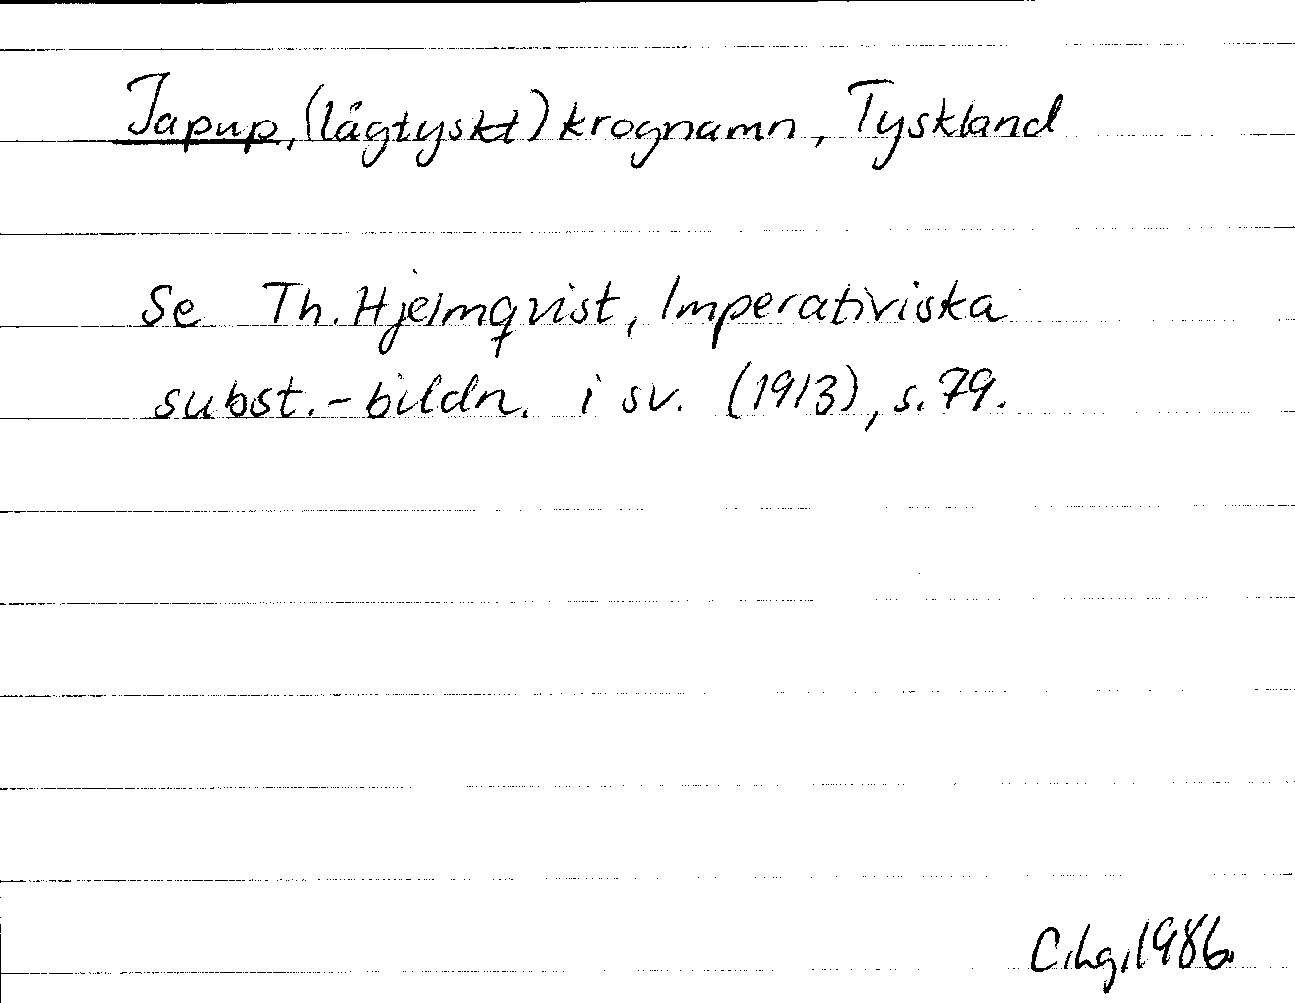 Japup, (lågtyskt) krognamn, Tyskland
Se Th. Hjelmqvist, Imperativiska
subst.-bildn. i sv. (1913), s. 79.
1986.